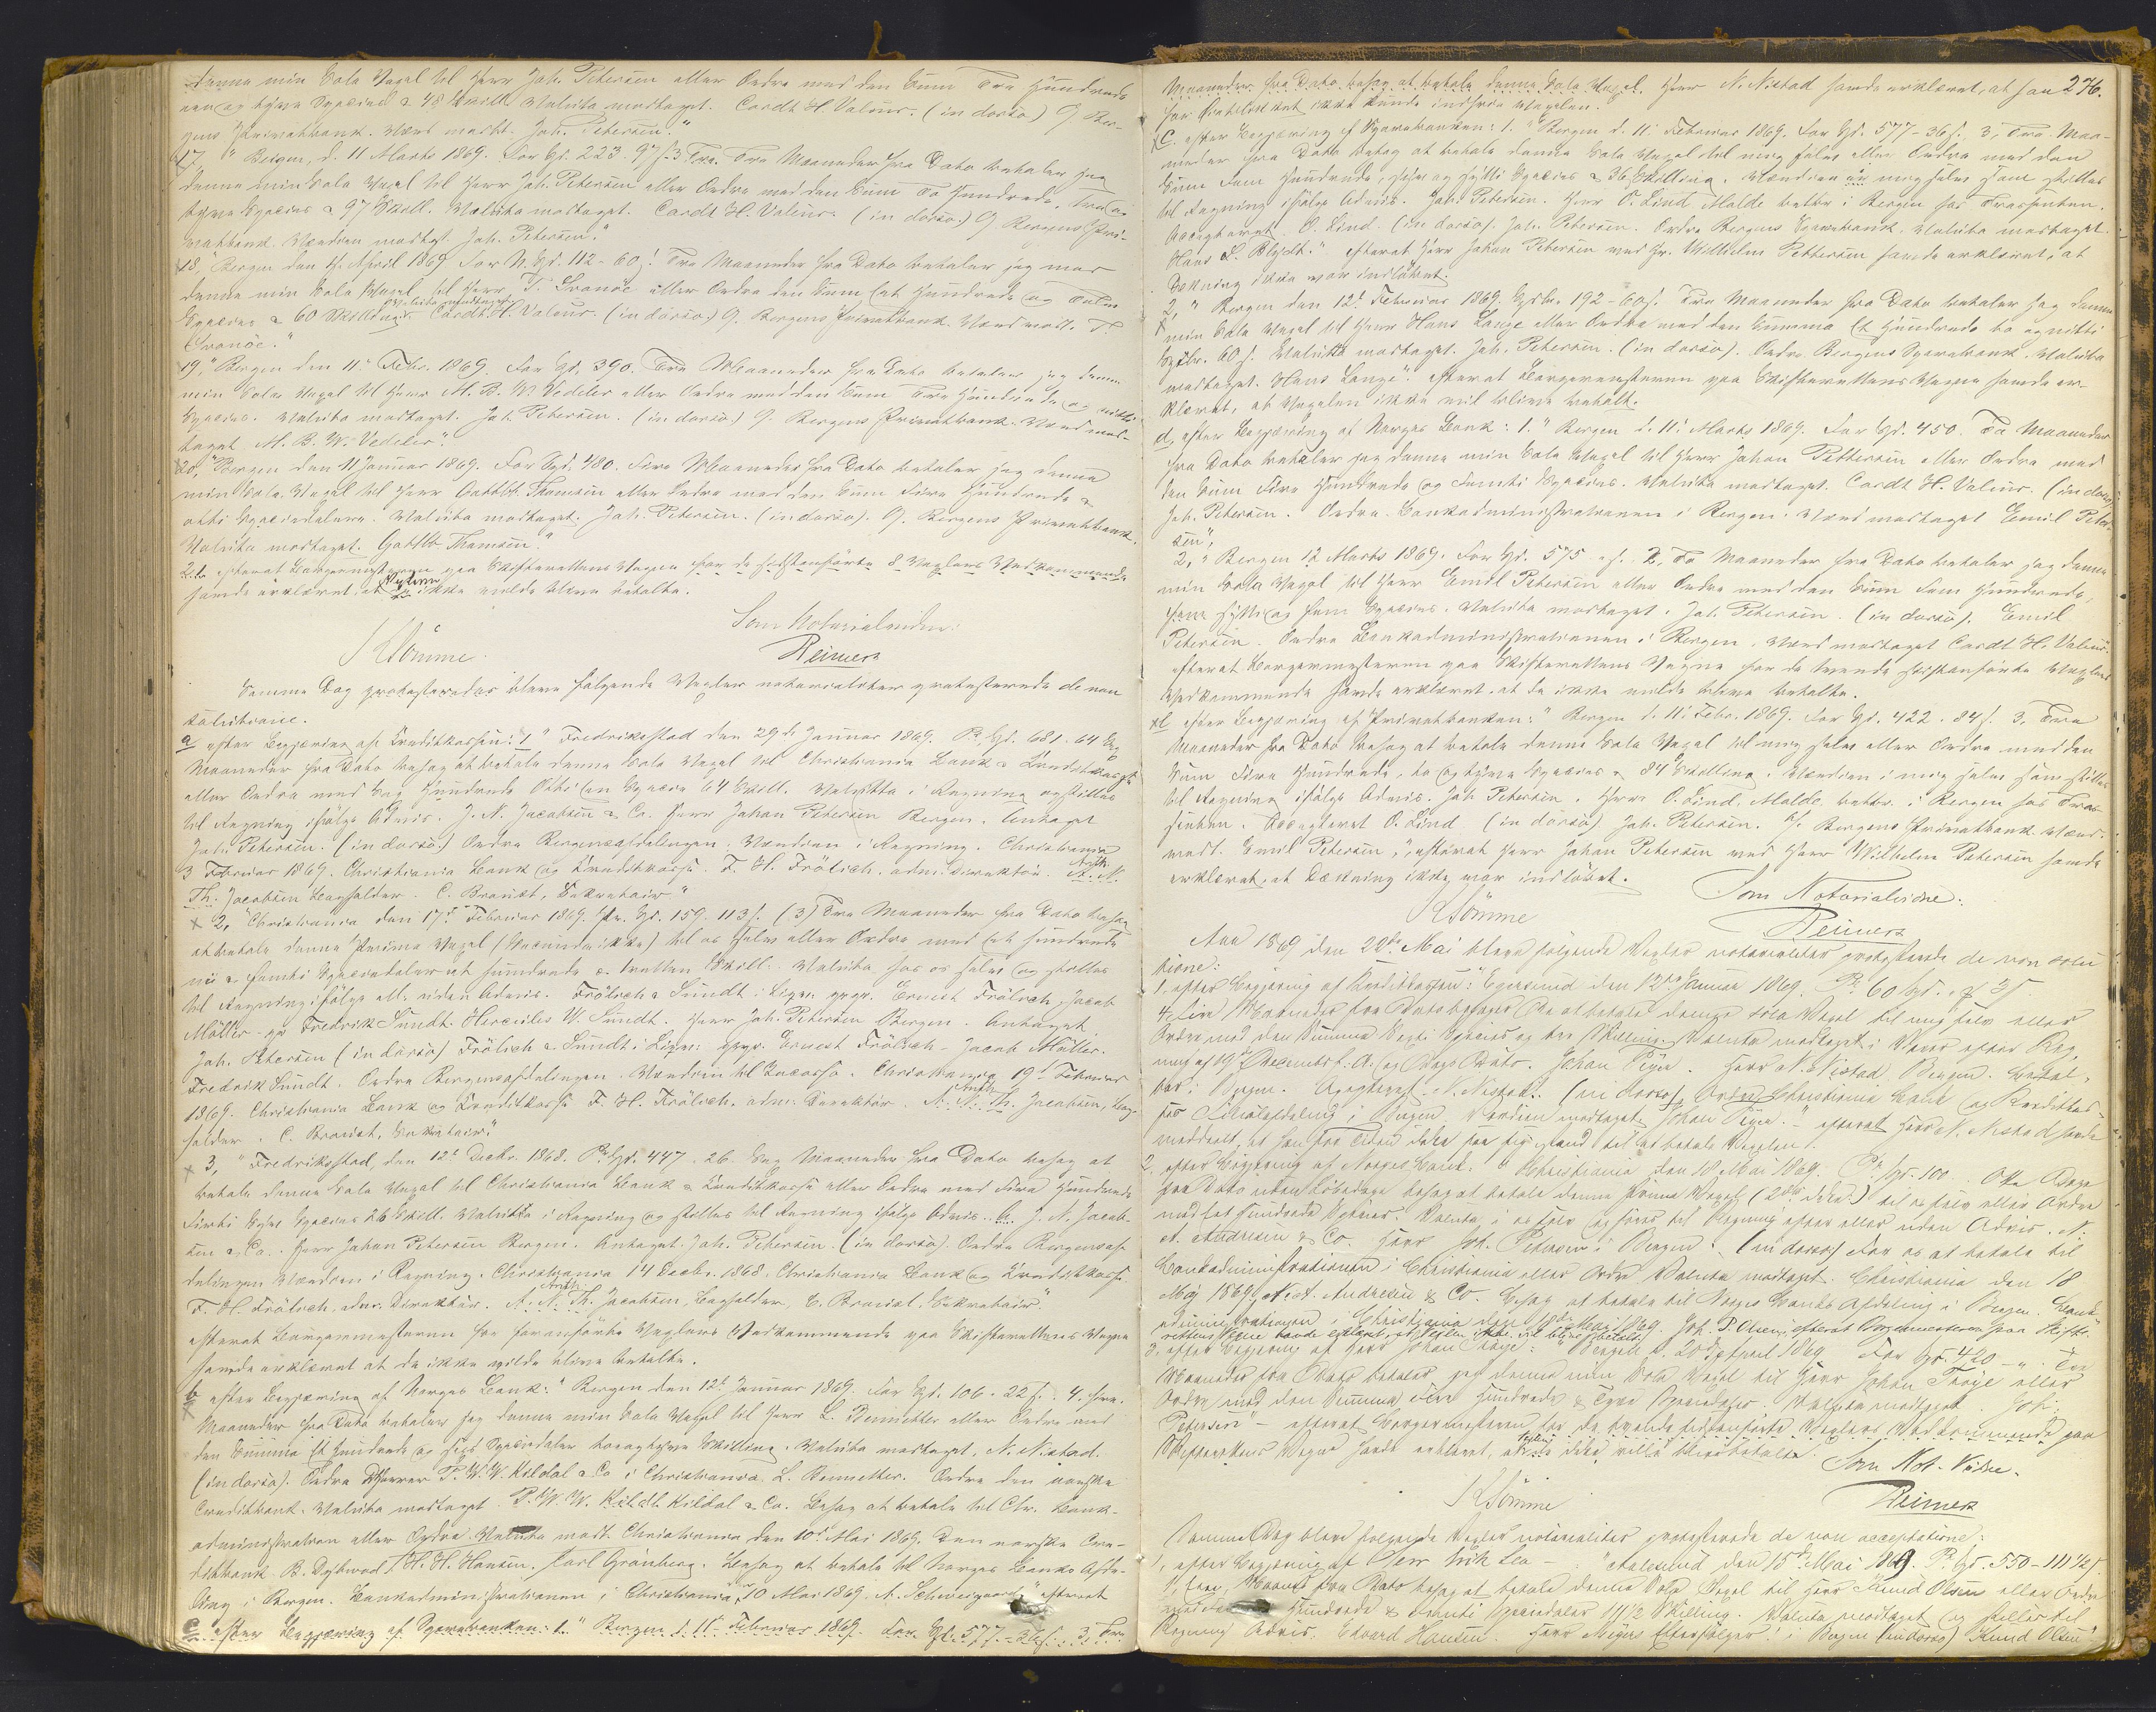 denne min Sola Vexel til Herr Joh. Petersen eller Ordre med den Sum Tre Hundrede
en og tyve Species & 48 Skill. Valuta modtaget. Cardt H. Valeur. (in dorso) O/ Ber-
gens Privatbank. Værd modt. Joh. Petersen."
17, "Bergen, d. 11 Marts 1869. For Spd. 223. 97 s. 3 Tre. Tre Maaneder fra Dato betaler jeg
denne min Sola Vexel til Herr Joh. Petersen eller Ordre med den Sum To Hundrede, tre og
tyve Species & 97 Skill. Valuta modtaget. Cardt H. Valeur. (in dorso.) O/ Bergens Pri-
vatbank. Værdien modtaget. Joh. Petersen."
18, "Bergen den 4. April 1869 For N. Spd. 112 - 60 s. Tre Maaneder fra Dato betaler jeg mod
denne min Sola Vexel til Herr T. Svanöe eller Ordre den Sum Et Hundrede og Tolv
Species & 60 Skilling. Valuta modtaget. Cardt H. Valeur. (in dorso.) O/ Bergens Privatbank. Værd modt. T.
Svanöe."
19, "Bergen den 11te Febr. 1869. For Spd. 390. Tre Maaneder fra Dato betaler jeg denne
min Sola Vexel til Herr M. B. W. Vedeler eller Ordre med den Sum Tre Hundrede og nitti
Species. Valuta modtaget. Joh. Petersen. (in dorso) O/ Bergens Privatbank. Værd mod-
taget M. B. W. Vedeler."
20, "Bergen den 11 Januar 1869. For Spd. 480. Fire Maaneder fra Dato betaler jeg denne
min Sola Vexel til Herr Gottlb. Thomsen eller Ordre med den Sum Fire Hundrede &
otti Speciedalere. Valuta modtaget. Joh. Petersen. (in dorso). O/ Bergens Privatbank.
Valuta modtaget. Gottlb Thomsen."
efterat Borgermesteren paa Skifterettens Vegne for de sidstanførte 8 Vexlers Vedkommende
havde erklæret, at Vexlerne ikke vilde blive betalte.
Som Notarialvidne:
K Sömme
Reimers
Samme Dag protesteredes bleve følgende Vexler notarialiter protesterede de non
solutione.
a, efter Begjæring af Kreditkassen: 1, "Fredrikstad den 29de Januar 1869. Pr. Spd. 681. 64 Sex
Maaneder fra Dato behag at betale denne Sola Vexel til Christiania Bank & Kreditkasse
eller Ordre med Sex Hundrede Otti en Species 64 Skill. Valutta i Regning og stilles
til Regning ifølge Advis. J. N. Jacobsen & Co. Herr Johan Petersen Bergen. Antaget
Joh. Petersen. (in dorso.) Ordre Bergensafdelingen. Værdien i Regning. Christiania
3 Februar 1869. Christiania Bank og Kreditkasse. F. H. Frölich. adm. Direktör. A. N.
Th. Jacobsen Bogholder. C. Broust, Sekretair."
x 2, "Christiania den 17de Februar 1869. Pr. Spd. 159. 113 s. (3) Tre Maaneder fra Dato behag
at betale denne Prima Vexel (Secunda ikke) til os selv eller Ordre med Et hundrede
ni & femti Speciedaler et hundrede & tretten Skill. Valuta hos os selv og stilles
til Regning ifølge ell. uden Advis. Frölich & Sundt i Liqv: pvgr. Ernest Frölich, Jacob
Möller. gr Fredrik Sundt. Hercules W. Sundt. Herr Joh. Petersen Bergen. Antaget.
Joh. Petersen (in dorso) Frölich & Sundt i Liqv: pvgr. Ernest Frölich - Jacob Möller.
Fredrik Sundt. Ordre Bergensafdelingen. Værdien til Incasso. Christiania 19de Februar
1869. Christiania Bank og Kreditkasse F. H. Frölich. adm. Direktör. A. N. Th. Jacobsen, Bog-
holder. C. Broust, Sekretair."
x 3, "Fredrikstad, den 12te Decbr. 1868. Pr Spd. 447. 26. Sex Maaneder fra Dato behag at
betale denne Sola Vexel til Christiania Bank & Kreditkasse eller Ordre med Fire Hundrede
Firti Syv Species 26 Skill. Valutta i Regning og stilles til Regning ifølge Advis. J. N. Jacob-
sen & Co. Herr Johan Petersen Bergen. Antaget. Joh. Petersen. (in dorso). Ordre Bergensaf-
delingen Værdien i Regning. Christiania 14 Decbr. 1868. Christiania Bank og Kreditkasse.
F. H. Frölich, adm. Direktör. A. N. Th. Jacobsen, Bogholder, C. Broust, Sekretair."
efterat Borgermesteren for foranførte Vexlers Vedkommende paa Skifterettens Vegne
havde erklæret at de ikke vilde blive betalte.
b, efter Begjæring af Norges Bank: "Bergen den 12te Januar 1869. For Spd. 106. 22 s. 4. fire.
Maaneder fra Dato betaler jeg denne min Sola Vexel til Herr L. Bennetter eller Ordre med
den Summa Et hundrede og sex Speciedaler toogtyve Skilling. Valuta modtaget, N. Nistad.
(in dorso). Ordre Dherrer P. W. W. Kildal & Co i Christiania L. Bennetter. Ordre den norske
Creditbank. Valuta modtaget P. W. W. Kildal & Co. Behag at betale til Chr. Bank-
administration eller Ordre Valuta modt. Christiania den 10de Mai 1869. Den norske Cre-
ditbank B. Dybwad / H. H. Hansen. Karl Grönberg. Behag at betale til Norges Banks Afde-
ling i Bergen. Bankadministrationen i Christiania, 10 Mai 1869. A. Schweigaard" efterat
c. efter Begjæring af Sparebanken: 1. "Bergen d. 11te Februar 1869. For Spd. 577 - 36 s. 3, Tre
276.
Maaneder fra Dato behag at betale denne Sola Vexel. Herr N. Nistad havde erklæret, at han
for Øieblikket ikke kunde indfrie Vexelen.
x C. efter Begjæring af Sparebanken: 1. "Bergen d. 11. Februar 1869. For Spd. 577 - 36 s. 3, Tre Maa-
neder fra Dato behag at betale denne Sola Vexel til mig selv eller Ordre med den
Sum Fem Hundrede, syv og sytti Species & 36 Skilling. Værdien i mig selv som stilles
til Regning ifølge Advis. Joh. Petersen. Herr O. Lind Molde betbr. i Bergen hos Trassenten.
Accepteret O. Lind. (in dorso). Joh. Petersen. Ordre Bergens Sparebank. Valuta modtaget.
Hans L. Blydt." efterat Herr Johan Petersen ved Hr. Wilhelm Pettersen havde erklæret, at
Dekning ikke var indløbet.
2, "Bergen den 12te Februar 1869. Spdlr. 192 - 60 s. Tre Maaneder fra Dato betaler jeg denne
x min Sola Vexel til Herr Hans Lange eller Ordre med den Summa Et Hundrede to og nitti
Spdlr. 60 s. Valutta modtaget. Joh. Petersen. (in dorso). Ordre Bergens Sparebank. Valuta
modtaget. Hans Lange." efterat Borgermesteren paa Skifterettens Vegne havde er-
klæret, at Vexelen ikke vil blive betalt.
d, efter Begjæring af Norges Bank: 1. "Bergen d. 11. Marts 1869. For Spd. 450. To Maaneder
fra Dato betaler jeg denne min Sola Vexel til Herr Johan Pettersen eller Ordre med
den Sum Fire Hundrede og Femti Species. Valuta modtaget. Cardt H. Valeur. (in dorso)
Joh. Petersen. Ordre Bankadministrationen i Bergen. Værd modtaget Emil Peter-
sen".
2, "Bergen 12 Marts 1869. For Spd. 575 " s. 2, To Maaneder fra Dato betaler jeg denne
min Sola Vexel til Herr Emil Petersen eller Ordre med den Sum Fem Hundrede,
fem Sytti og fem Species. Valuta modtaget. Joh. Petersen. (in dorso). Emil
Petersen. Ordre Bankadministrationen i Bergen. Værd modtaget Cardt H. Valeur."
efterat Borgermesteren paa Skifterettens Vegne for de tvende sidstanførte Vexlers
Vedkommende havde erklæret, at de ikke vilde blive betalte.
x e efter Begjæring af Privatbanken: "Bergen d. 11. Febr. 1869. For Spd. 422. 84 s. 3. Tre
Maaneder fra Dato behag at betale denne Sola Vexel til mig selv eller Ordre med den
Sum Fire Hundrede, to og tyve Species & 84 Skilling. Værdien i mig selv som stilles
til Regning ifølge Advis. Joh Petersen. Herr O. Lind, Molde betbr. i Bergen hos Tras-
senten. Accepteret O. Lind (in dorso) Joh. Petersen. O/. Bergens Privatbank Værd.
modt. Emil Petersen", efterat Herr Johan Petersen ved Herr Wilhelm Petersen havde
erklæret, at Dækning ikke var indløbet.
Som Notarialvidne.
K Sömme
Reimers
Aar 1869 den 22de Mai bleve følgende Vexler notarialiter protesterede de non solu
tione:
1. efter Begjæring af Kreditkassen: "Egersund den 12te Januar 1869. Pr. 60 Spd. " 3 s.
4 fire Maaneder fra Dato behager De at betale denne Sola Vexel til mig selv eller
Ordre med den Summa Sexti Species og tre Skilling. Valuta modtaget i Varer efter Reg-
ning af 19de December f. A. og Deres Ordre. Johan Feyer. Herr N. Nistad Bergen. betal-
bar i Bergen. Accepteret N. Nistad. (in dorso) Ordre Christiania Bank og Kreditkas-
ses Filialafdeling i Bergen Værdien modtaget Johan Feyer." - efterat Herr N. Nistad havde
meddeelt, at han for Tiden ikke saa sig istand til at betale Vexelen.
2. efter Begjæring af Norges Bank: "Christiania den 18 Mai 1869. Pr. Spd. 100. Otte Dage
fra Dato uden Løbedage behag at betale denne Prima Vexel (2da ikke) til os selv eller Ordre
med Et Hundrede Species. Valuta i os selv og føres til Regning efter eller uden Advis. N.
A. Andresen & Co. Herr Joh. Petersen i Bergen. (in dorso) For os at betale til
Bankadministrationen i Christiania eller Ordre Valuta modtaget. Christiania den 18
Maj 1869. N. A. Andresen & Co. Behag at betale til Norges Banks Afdeling i Bergen. Bank
administrationen i Christiania den 18de Mai 1869. Joh. P. Olsen" efterat Borgermesteren paa Skifte-
rettens Vegne havde erklæret, at Vexlen ikke vil blive betalt.
3. efter Begjæring af Herr Johan Troye: "Bergen d. 20de April 1869 For Spd. 420 - " . En
Maaned fra Dato betaler jeg denne min Sola Vexel til Herr Johan Troye eller
Ordre med den Summa Fire Hundrede & Tyve Speciedaler. Valuta modtaget. Joh.
Petersen" - efterat Borgermesteren for de tvende sidstanførte Vexlers Vedkommende paa
Skifterettens Vegne havde erklæret, at ikke ville blive betalte.
Som Not. Vidne.
K Sömme
Reimers
Samme Dag bleve følgende Vexler notarialiter protesterede de non acceptatione:
1, efter Begjæring af Herr Erik Lea - "Aalesund den 15de Mai 1869. Pr. Spd. 550 - 111 1/2 s.
Maaned fra Dato behag at betale denne Sola Vexel til Herr Knud Olsen eller Ordre
med Hundrede & femti Speciedaler 111 1/2 Skilling. Valuta modtaget og stilles til
Regning Advis. Edvard Hansen. Herr Meyers Efterfølger i Bergen (in dorso) Knud Olsen"